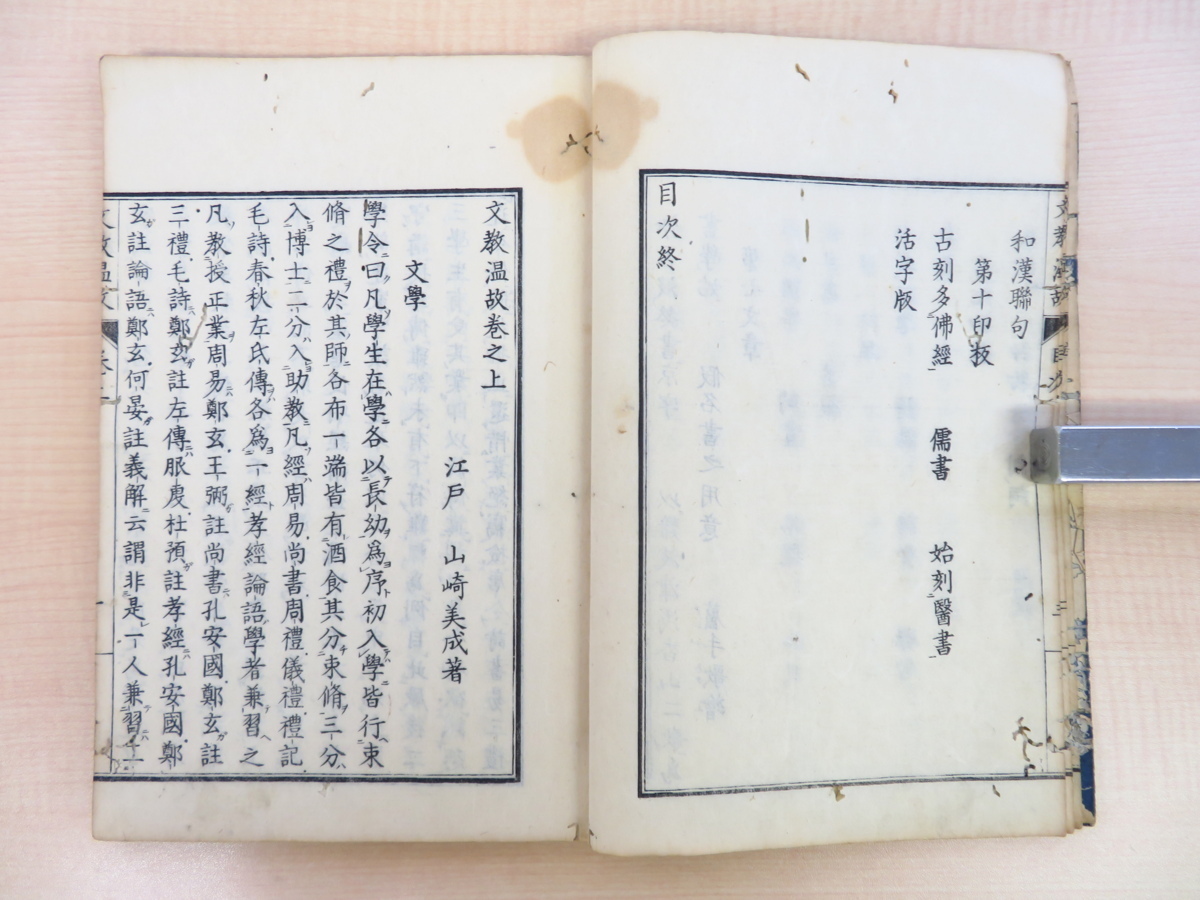 和漢聯句
第十印板
古刻多佛經 儒書 始刻醫書
活字版
目次終
文教温故卷之上
江戸 山崎美成著
文學
學令曰凡學生在學各以長幼爲序初入學皆行束
脩之禮於其師各布一端皆有酒食其分束脩三分
入博士二分入助教凡經周易尚書周禮儀禮禮記
毛詩春秋左氏傳各爲一經孝經論語學者兼習之
凡教授正業周易鄭玄王弼註尚書孔安國鄭玄註
三禮毛詩鄭玄註左傳服虔杜預註孝經孔安國鄭
玄註論語鄭玄何晏註義解云謂非是一人兼習二